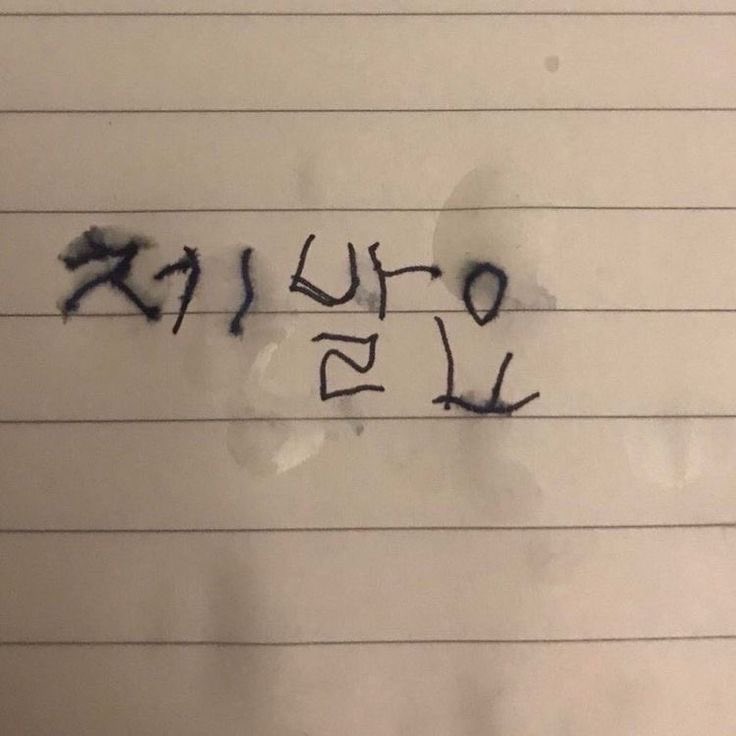 제발요